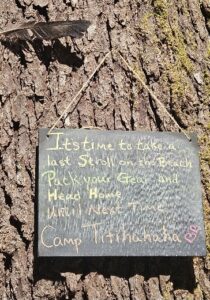 Its time to take a
last Stroll on the Beach
Pack your Gear and
Head Home
Until Next Time
Camp Titihahaha